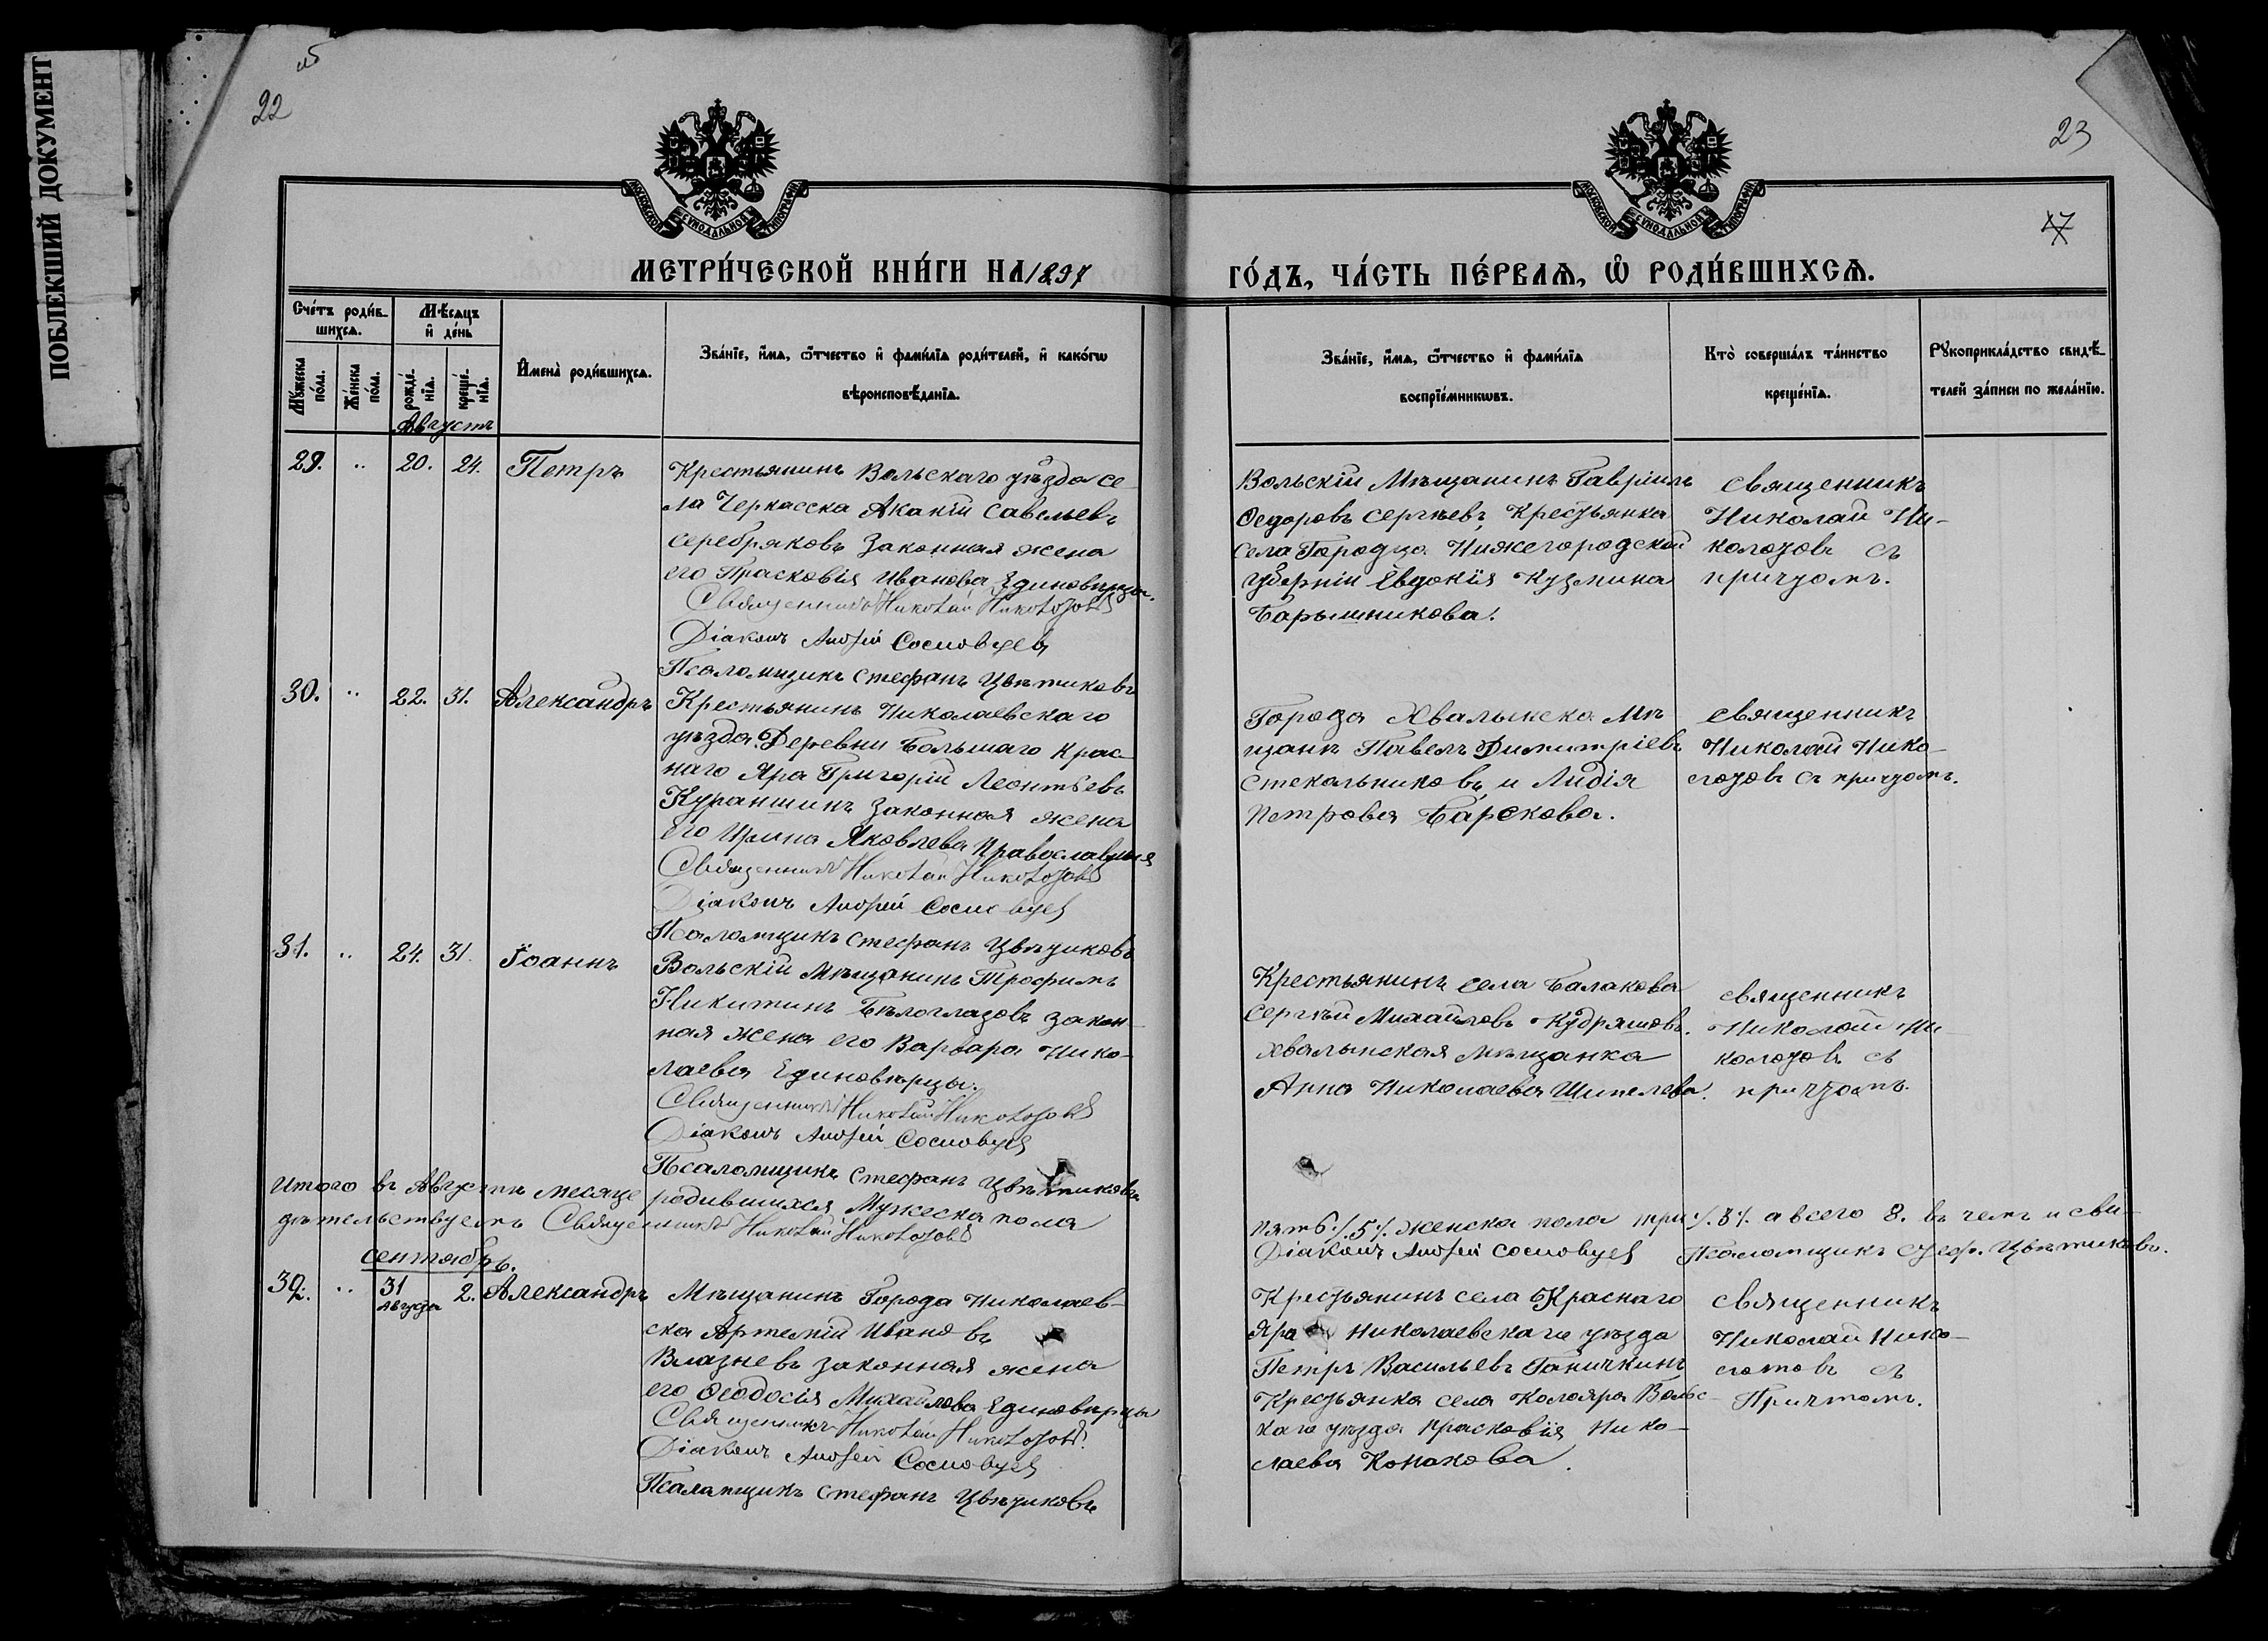 ПОБЛЕКШИЙ ДОКУМЕНТ
22
23
47
МОСКОВСКОЙ СѴНОДАЛЬНОЙ ТИПОГРАФІИ
МОСКОВСКОЙ СѴНОДАЛЬНОЙ ТИПОГРАФІИ
МЕТРИ́ЧЕСКОЙ КНИ́ГИ НА 1897
ГО́ДЪ, ЧА́СТЬ ПЕ́РВАѦ, Ѡ҆ РОДИ́ВШИХСѦ.
Сче́тъ роди́в-
шихсѧ.
Мꙋ́жеска
по́ла.
Же́нска
по́ла.
Мѣ́сѧцъ
и҆ де́нь
рожде́-
нїѧ.
креще́-
нїѧ.
Августъ
И҆мена̀ роди́вшихсѧ.
Зва́нїе, и҆́мѧ, ѻ҆́тчество и҆ фами́лїѧ роди́телей, и҆ како́гѡ
вѣроисповѣ́данїѧ.
Зва́нїе, и҆́мѧ, ѻ҆́тчество и҆ фами́лїѧ
воспрїе́мникѡвъ.
Кто̀ соверша́лъ та́инство
креще́нїѧ.
Рꙋкоприкла́дство свидѣ́-
телей за́писи по жела́нїю.
29. .. 20. 24. Петръ
Крестьянинъ Вольскаго уѣзда се-
ла Черкасска Акакій Савельевъ
Серебряковъ Законная жена
его Прасковія Иванова Единовѣрцы.
Священникъ Николай Николотовъ
Діаконъ Андрей Сосновцевъ
Псаломщикъ Стефанъ Цвѣтиковъ
Вольскій Мѣщанинъ Гавріилъ
Федоровъ Сергѣевъ, Крестьянка
села Городца Нижегородской
губерніи Евдокія Кузмина
Барышникова.
священникъ
Николай Ни-
колотовъ съ
причтомъ.
30. .. 22. 31. Александръ
Крестьянинъ Николаевскаго
уѣзда Деревни Большаго Крас-
наго Яра Григорій Леонтьевъ
Кураншинъ Законная жена
его Ирина Яковлева Православныя
Священникъ Николай Николотовъ
Діаконъ Андрей Сосновцевъ
Псаломщикъ Стефанъ Цвѣтиковъ
Города Хвалынска Мѣ
щанъ Павелъ Димитріевъ
Стекольниковъ, и Лидія
Петровва Барскова.
священникъ
Николай Нико-
лотовъ съ причтомъ.
31. .. 24. 31. Іоаннъ
Вольскій Мѣщанинъ Трофимъ
Никитинъ Бѣлоглазовъ закон-
ная жена его Варвара Нико-
лаева Единовѣрцы.
Священникъ Николай Николотовъ
Діаконъ Андрей Сосновцевъ
Псаломщикъ Стефанъ Цвѣтиковъ
Крестьянинъ села Балакова
Сергѣй Михайловъ Кудряшовъ.
Хвалынская мѣщанка
Анна Николаева Шипелева.
священникъ
Николай Ни-
колотовъ съ
причтомъ.
Итого въ Августѣ месяце родившихся Мужеска пола
пять ./.5./. женска пола три ./.3./. а всего 8. въ чемъ и сви-
дѣтельствуемъ Священникъ Николай Николотовъ
Діаконъ Андрей Сосновцевъ Псаломщикъ Стеф. Цвѣтиковъ.
сентябрь.
32. .. 31 Августа 2. Александръ
Мѣщанинъ Города Николаев-
ска Артемій Ивановъ
Влазневъ законная жена
его Феодосія Михайлова Единовѣрцы
Священникъ Николай Николотовъ.
Діаконъ Андрей Сосновцевъ
Псаломщикъ Стефанъ Цвѣтиковъ
Крестьянинъ села Краснаго
Яра Николаевскаго уѣзда
Петръ Васильевъ Ганичкинъ
Крестьянка села Колояра Вольс-
каго уѣзда Прасковія Нико-
лаева Конакова.
священникъ
Николай Нико-
лотовъ съ
Причтомъ.